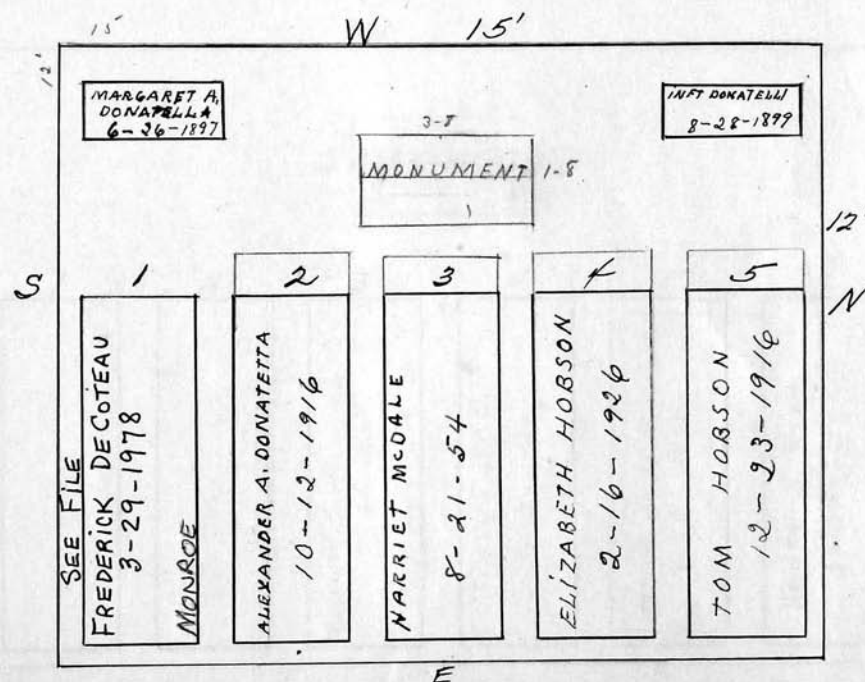 15 W 15'
12'
MARGARET A.
DONATELLA
6-26-1897
INFT DONATELLI
8-28-1899
3-8
MONUMENT 1-8
12
S
N
1
2
3
4
5
SEE FILE
FREDERICK DECOTEAU
3-29-1978
MONROE
ALEXANDER A. DONATETTA
10-12-1916
HARRIET MCDALE
8-21-54
ELIZABETH HOBSON
2-16-1926
TOM HOBSON
12-23-1916
E